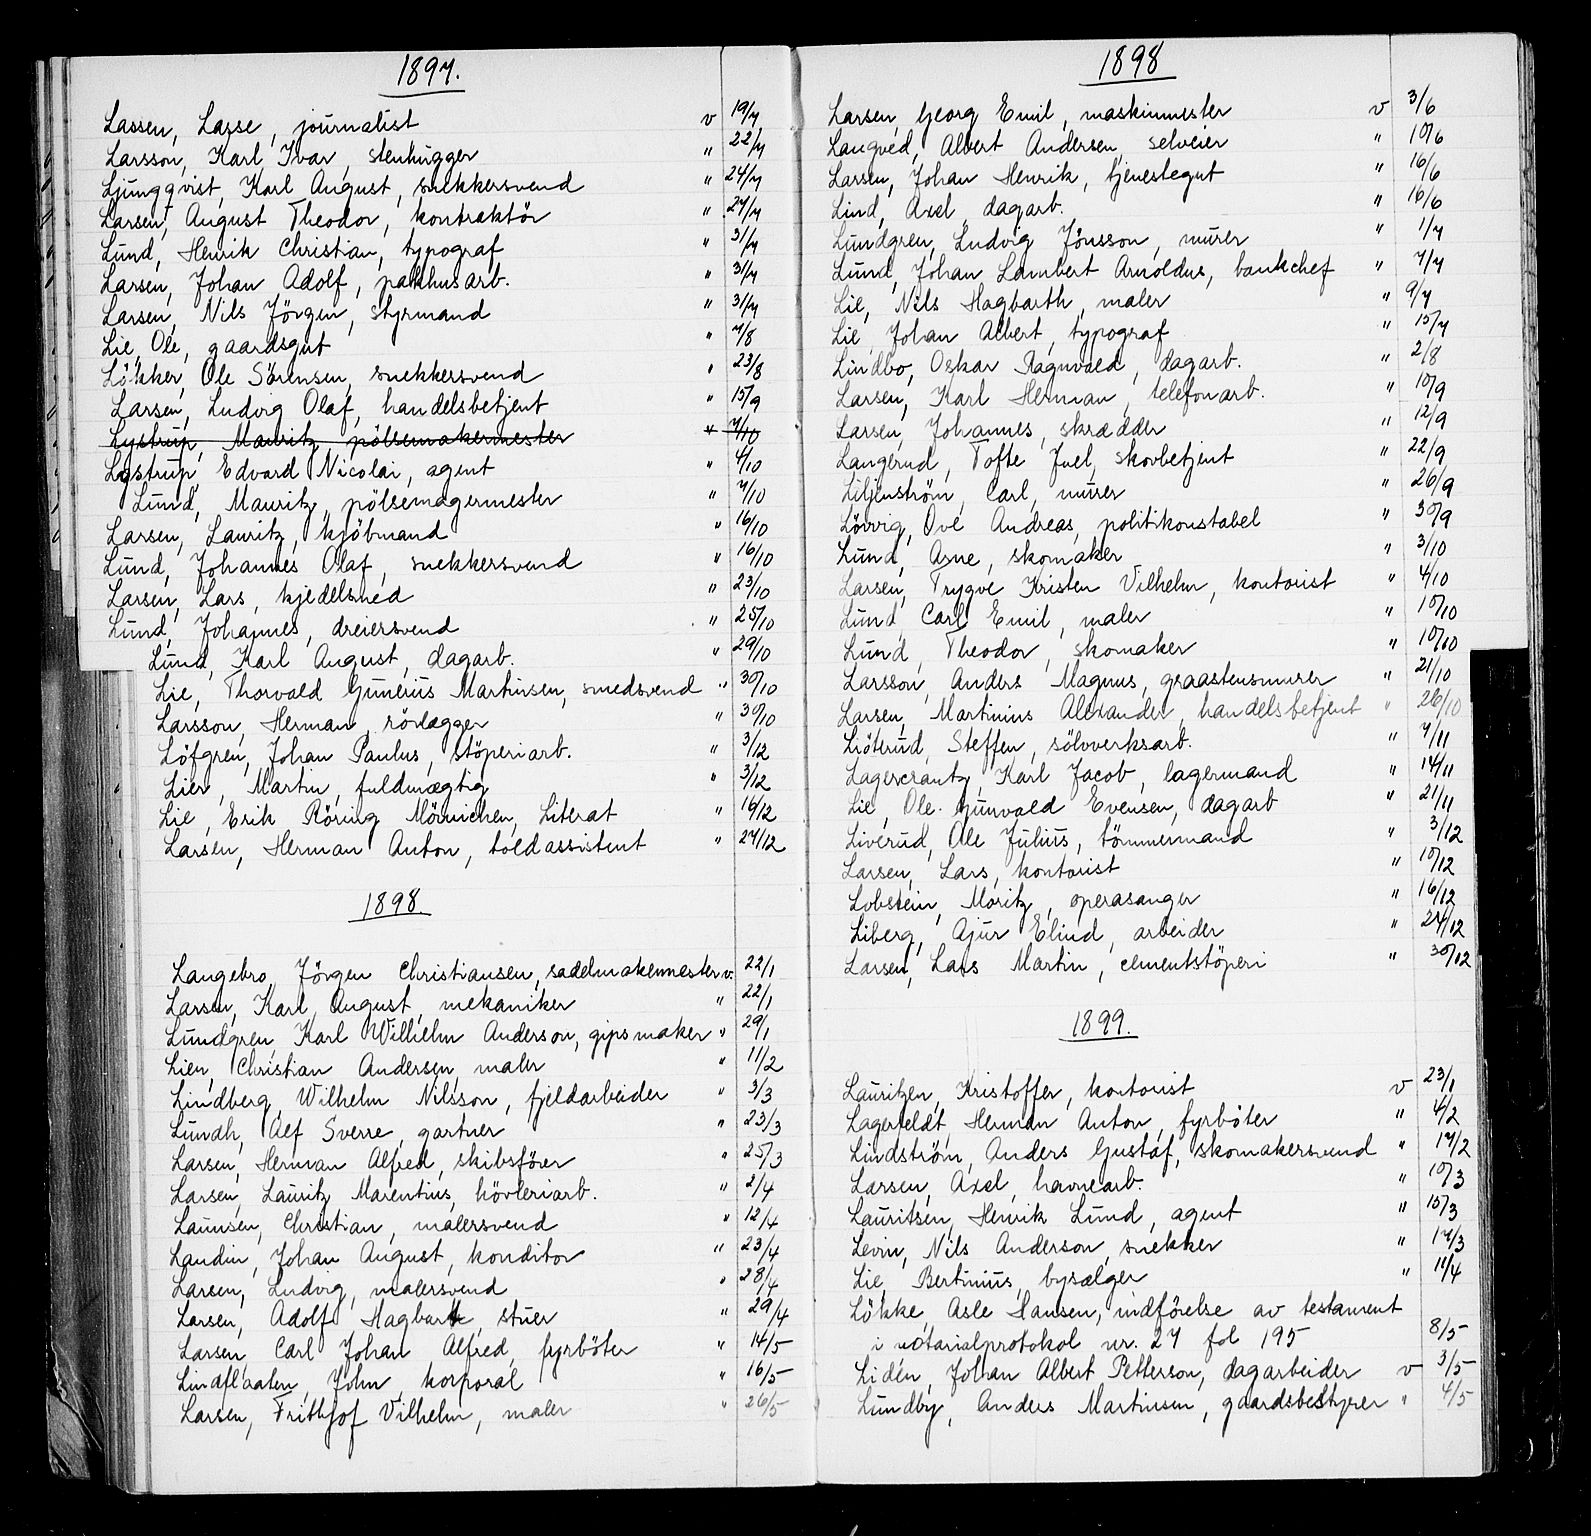 1897.
Lassen, Lasse, journalist v 19/7
Larsson, Karl Ivar, stenhugger " 22/7
Ljungqvist, Karl August, snekkersvend " 24/7
Larsen, August Theodor, kontraktör " 27/7
Lund, Henrik Christian, typograf " 31/7
Larsen, Johan Adolf, pakhusarb. " 31/7
Larsen, Nils Jörgen, styrmand " 31/7
Lie, Ole, gaardsgut " 7/8
Lökker, Ole Sörensen, snekkersvend " 23/8
Larsen, Ludvig Olaf, handelsbetjent " 15/9
Lystrup, Mauritz, pölsemakermester " 7/10
Lystrup, Edvard Nicolai, agent " 4/10
Lund, Mauritz, pölsemagermester " 7/10
Larsen, Lauritz, kjöbmand " 16/10
Lund, Johannes Olaf, snekkersvend " 16/10
Larsen, Lars, kjedelsmed " 23/10
Lund, Johannes, dreiersvend " 25/10
Lund, Karl August, dagarb. " 29/10
Lie, Thorvald Gunerius Martinsen, smedsvend " 30/10
Larsson, Herman, rörlægger " 30/10
Löfgren, Johan Paulus, stöperiarb. " 3/12
Lier, Martin, fuldmægtig " 3/12
Lie, Erik Röring Möinichen, Literat " 16/12
Larsen, Herman Anton, toldassistent " 27/12
1898.
Langebro, Jörgen Christiansen, sadelmakermester v. 22/1
Larsen, Karl August, mekaniker " 22/1
Lundgren, Karl Wilhelm Anderson, gipsmaker " 29/1
Lien, Christian Andersen, maler " 11/2
Lindberg, Wilhelm Nilsson, fjeldarbeider " 3/3
Lundh, Alf Sverre, gartner " 23/3
Larsen, Herman Alfred, skibsförer " 25/3
Larsen, Lauritz Marentius, hövleriarb. " 2/4
Launsen, Christian, malersvend " 12/4
Landin, Johan August, konditor " 23/4
Larsen, Ludvig, malersvend " 28/4
Larsen, Adolf Hagbart, stuer " 29/4
Larsen, Carl Johan Alfred, fyrböter " 14/5
Lindflaaten, John, korporal " 16/5
Larsen, Frithjof Vilhelm, maler " 26/5
1898
Larsen, Georg Emil, maskinmester v 3/6
Langved, Albert Andersen, selveier " 10/6
Larsen, Johan Henrik, tjenestegut " 16/6
Lind, Axel, dagarb. " 16/6
Lundgren, Ludvig Jönsson, murer " 1/7
Lund, Johan Lambert Arnoldus, bankchef " 7/7
Lie, Nils Hagbarth, maler " 9/7
Lie, Johan Albert, typograf " 15/7
Lindbo, Oskar Ragnvald, dagarb. " 2/8
Larsen, Karl Herman, telefonarb. " 10/9
Larsen, Johannes, skrædder " 12/9
Langerud, Tofte Juel, skovbetjent " 22/9
Liljenström, Carl, murer " 26/9
Lövvig, Ove Andreas, politikonstabel " 30/9
Lund, Arne, skomaker " 3/10
Larsen, Trygve Kristen Vilhelm, kontorist " 4/10
Lund, Carl Emil, maler " 10/10
Lund, Theodor, skomaker " 10/10
Larsson, Anders Magnus, graastensmurer " 21/10
Larsen, Martinius Alexander, handelsbetjent " 26/10
Liöterud, Steffen, sölvverksarb. " 7/11
Lagercrantz, Karl Jacob, lagermand " 14/11
Lie, Ole Gunvald Evensen, dagarb " 21/11
Liverud, Ole Julius, tömmermand " 3/12
Larsen, Lars, kontorist " 10/12
Lobstein, Moritz, operasanger " 16/12
Liberg, Ajur Elind, arbeider " 27/12
Larsen, Lars Martin, cementstöperi " 30/12
1899.
Lauritzen, Kristoffer, kontorist v 23/1
Lagerfeldt, Herman Anton, fyrböter " 4/2
Lindström, Anders Gustaf, skomakersvend " 17/2
Larsen, Axel, havnearb. " 10/3
Lauritsen, Henrik Lund, agent " 15/3
Levin, Nils Anderson, snekker " 17/3
Lie, Bertinius, bysælger " 11/4
Lökke, Asle Hansen, indförelse av testament
i notarialprotokol nr. 27 fol 195 8/5
Lidén, Johan Albert Petterson, dagarbeider v 3/5
Lundby, Anders Martinsen, gaardsbestyrer " 4/5